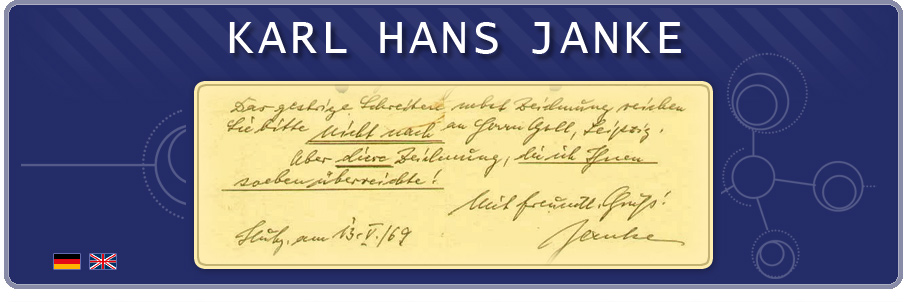 KARL HANS JANKE
Das gestrige Schreiben nebst Zeichnung reichen
Sie bitte nicht nach an Herrn Goll, Leipzig.
Aber diese Zeichnung, die ich Ihnen
soeben überreichte!
Mit freundl. Gruß!
am 13. V. /69
Janke